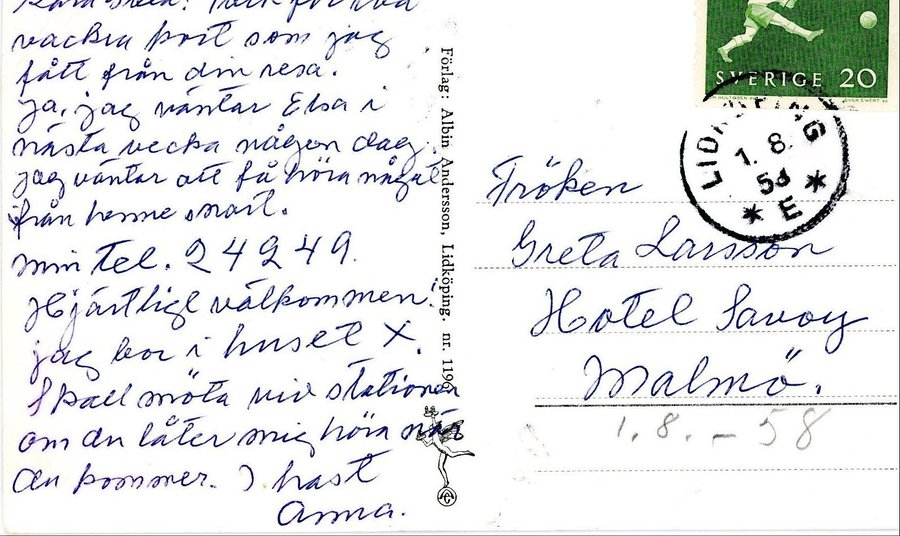 vackra kort som jag
fått från din resa.
ja, jag väntar Elsa i
nästa vecka någon dag.
jag väntar att få höra något
från henne snart.
min tel. 24249.
Hjärtligt välkommen!
jag bor i huset X.
Skall möta vid stationen
om du låter mig höra när
du kommer. I hast
Anna.
Förlag: Albin Andersson, Lidköping. nr. 1196
SVERIGE 20
LIDKÖPING
1. 8
58
* E *
Fröken
Greta Larsson
Hotel Savoy
Malmö.
1. 8. - 58